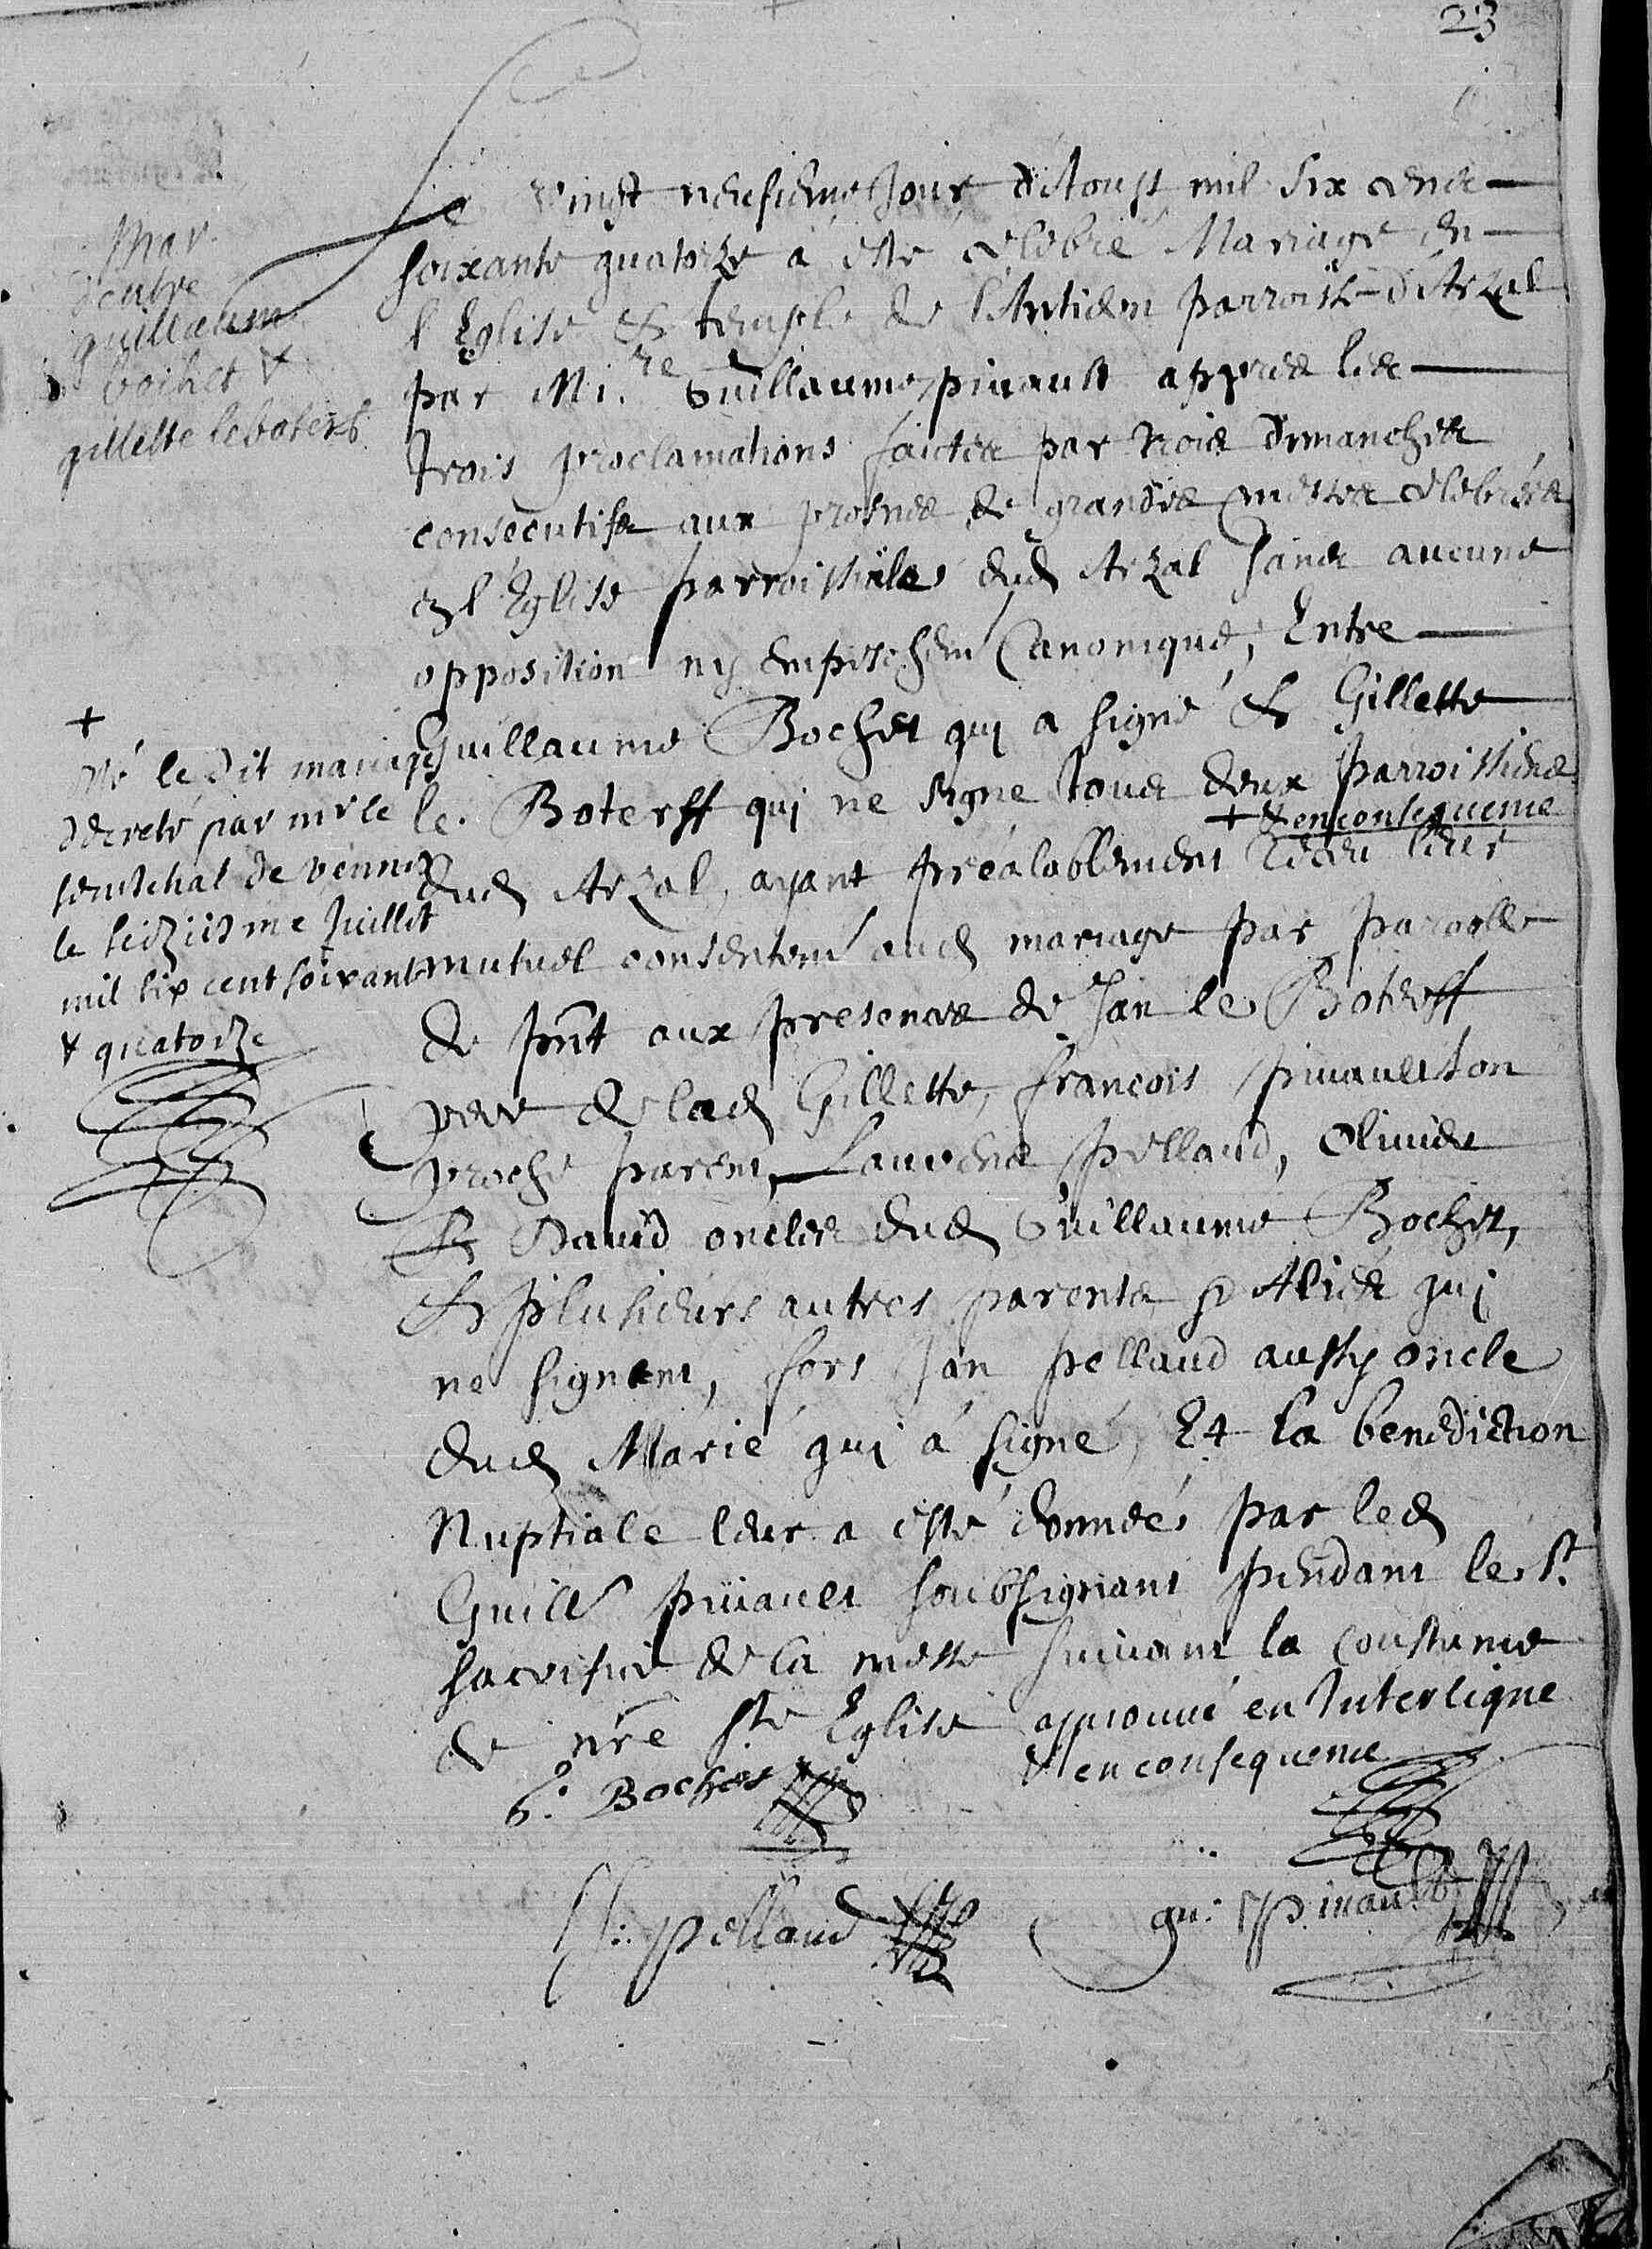 23
Mar.
d'entre
guillaume
bochet &
gillette leboterf
Le vingt neufieme Jour d'Aoust mil six cents
soixante quatorze a esté celebré Mariage en
l'Eglise & temple de l'Antien parroisse d'Arzal
par Mi.re Guillaume pinault appres les
trois proclamations faictes par trois dimanches
consecutifs aux prosnes de grandes messes celebrées
en l'Eglise parroissiale dud Arzal sans aucune
opposition ny empeschem Canonique, Entre
Guillaume Bochet qui a signé & Gillette
le Boterff qui ne signe tous deux parroissiens
+ & en consequence
dud Arzal, ayant préalablement receu leur
mutuel consentem aud mariage par parolle
de pnt aux presences de Jan le Boterff
pere de lad Gillette, francois pinault son
proche parent, Laurens pellaud, Olivier
& David oncles dud Guillaume Bochet,
& plusieurs autres parents & Aliés qui
ne signent, fors Jan pellaud aussy oncle
dud Marié qui a signé, Et la benediction
Nuptiale leur a esté donnée par led
Guille pinault soubsignant pendant le St.
sacrifice de la messe suivant la coustume
de nre Ste Eglise approuvé en Interligne
& en consequence
+
le dit mariage
decreté par mr le
seneschal de vennes
le seiziesme juillet
mil six cent soixante
& quatorze
G. Bochet
J: pellaud
gu: pinault